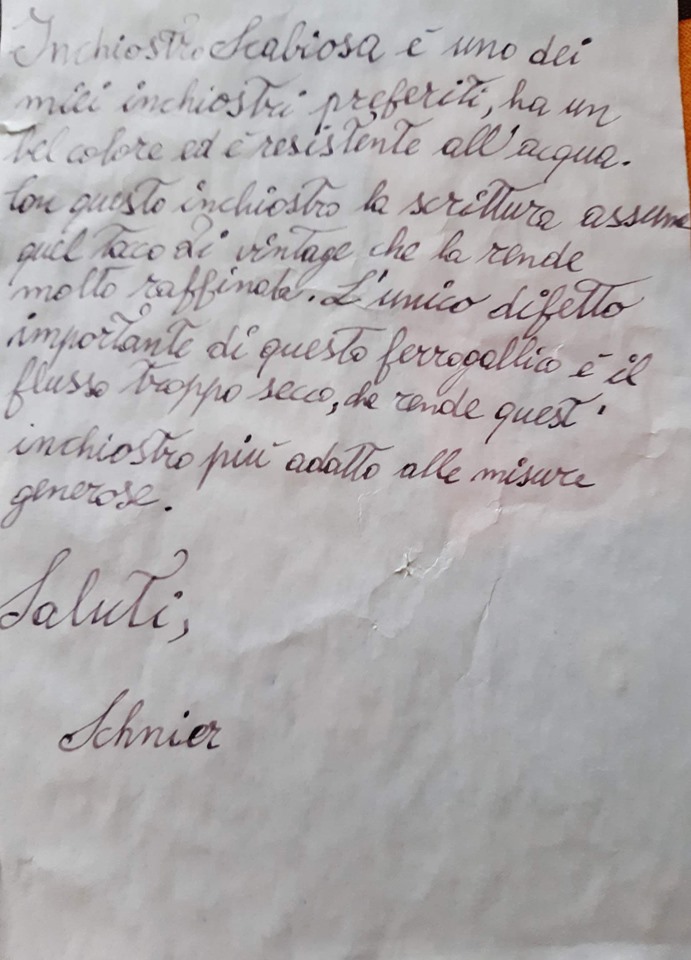 Inchiostro Scabiosa è uno dei
miei inchiostri preferiti, ha un
bel colore ed è resistente all'acqua.
Con questo inchiostro la scrittura assume
quel taco di vintage che la rende
molto raffinata. L'unico difetto
importante di questo ferrogallico è il
flusso troppo secco, che rende quest'
inchiostro più adatto alle misure
generose.
Saluti,
Schnier